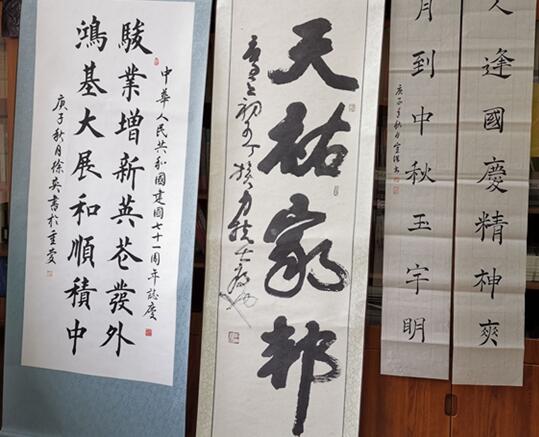 人逢國慶精神爽
月到中秋玉宇明
庚子年秋月
天祐家邦
中華人民共和國建國七十一周年誌慶
駿業增新英華發外
鴻基大展和順積中
庚子秋月徐英書於重慶